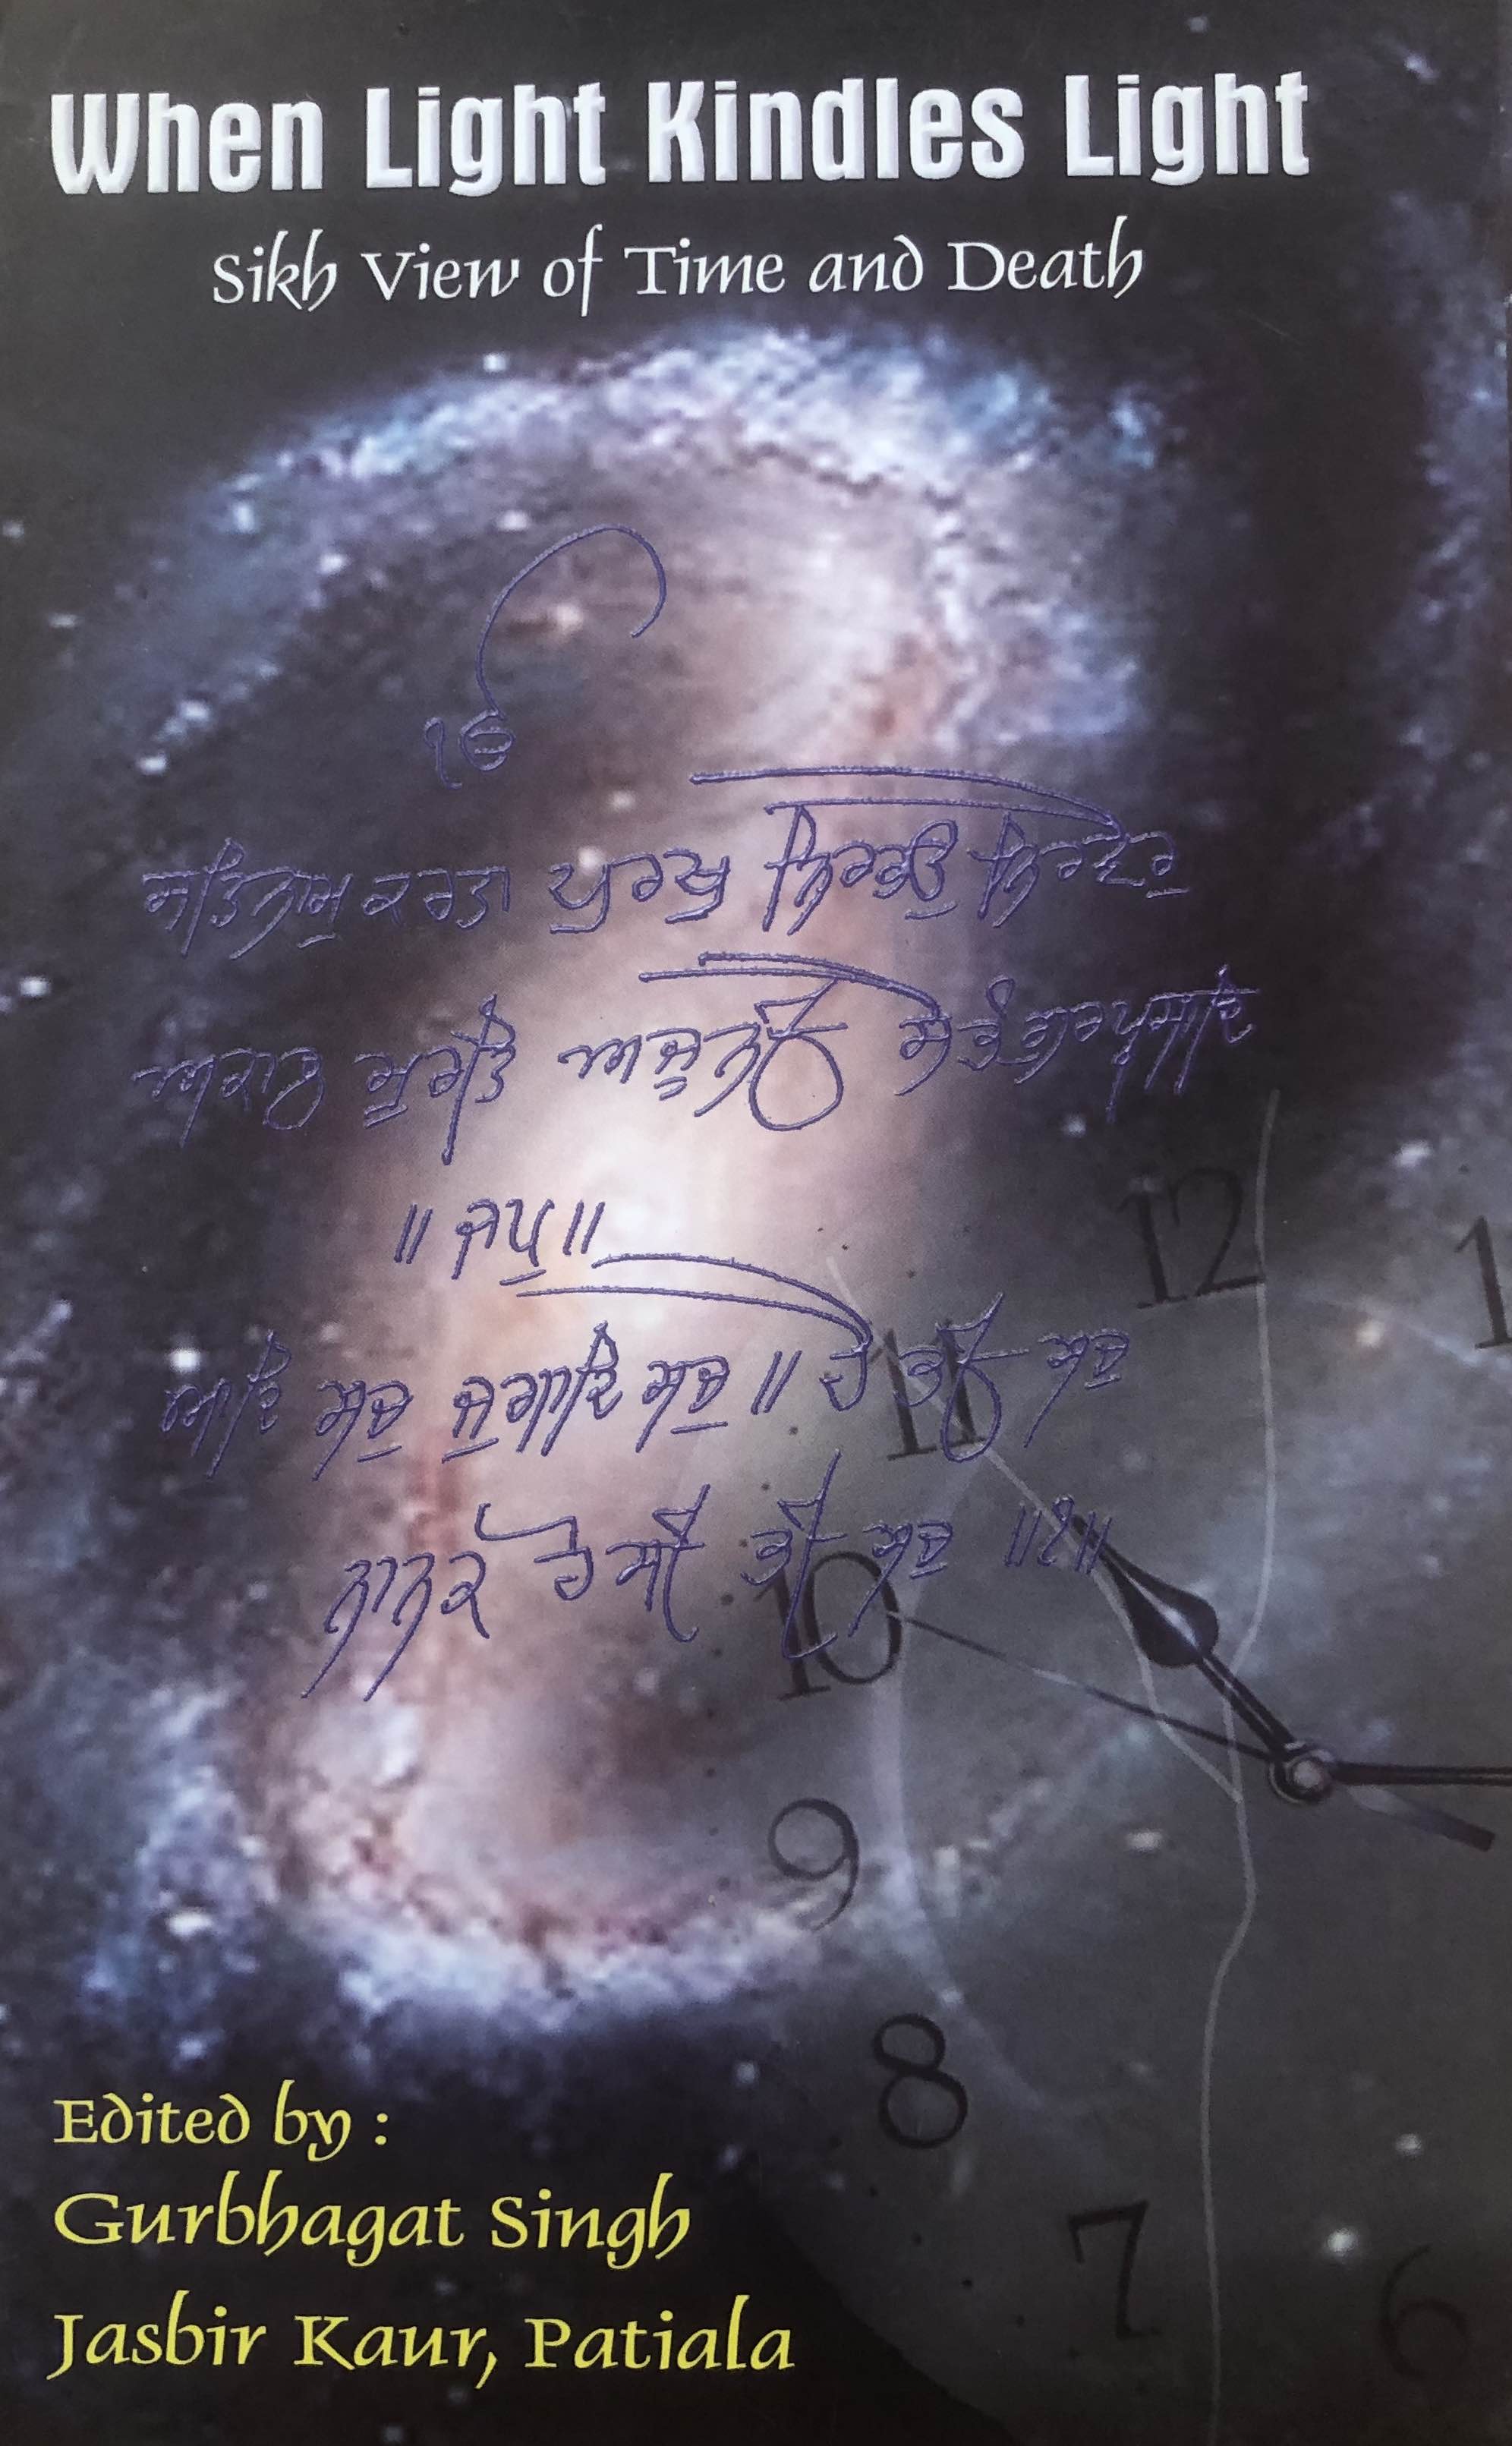 When Light Kindles Light
Sikh View of Time and Death
ੴ
ਸਤਿਨਾਮੁ ਕਰਤਾ ਪੁਰਖੁ ਨਿਰਭਉ ਨਿਰਵੈਰੁ
ਅਕਾਲ ਮੂਰਤਿ ਅਜੂਨੀ ਸੈਭੰ ਗੁਰਪ੍ਰਸਾਦਿ
॥ ਜਪੁ ॥
ਆਦਿ ਸਚੁ ਜੁਗਾਦਿ ਸਚੁ ॥ ਹੈ ਭੀ ਸਚੁ
ਨਾਨਕ ਹੋਸੀ ਭੀ ਸਚੁ ॥੧॥
12
1
11
10
9
8
7
6
Edited by :
Gurbhagat Singh
Jasbir Kaur, Patiala